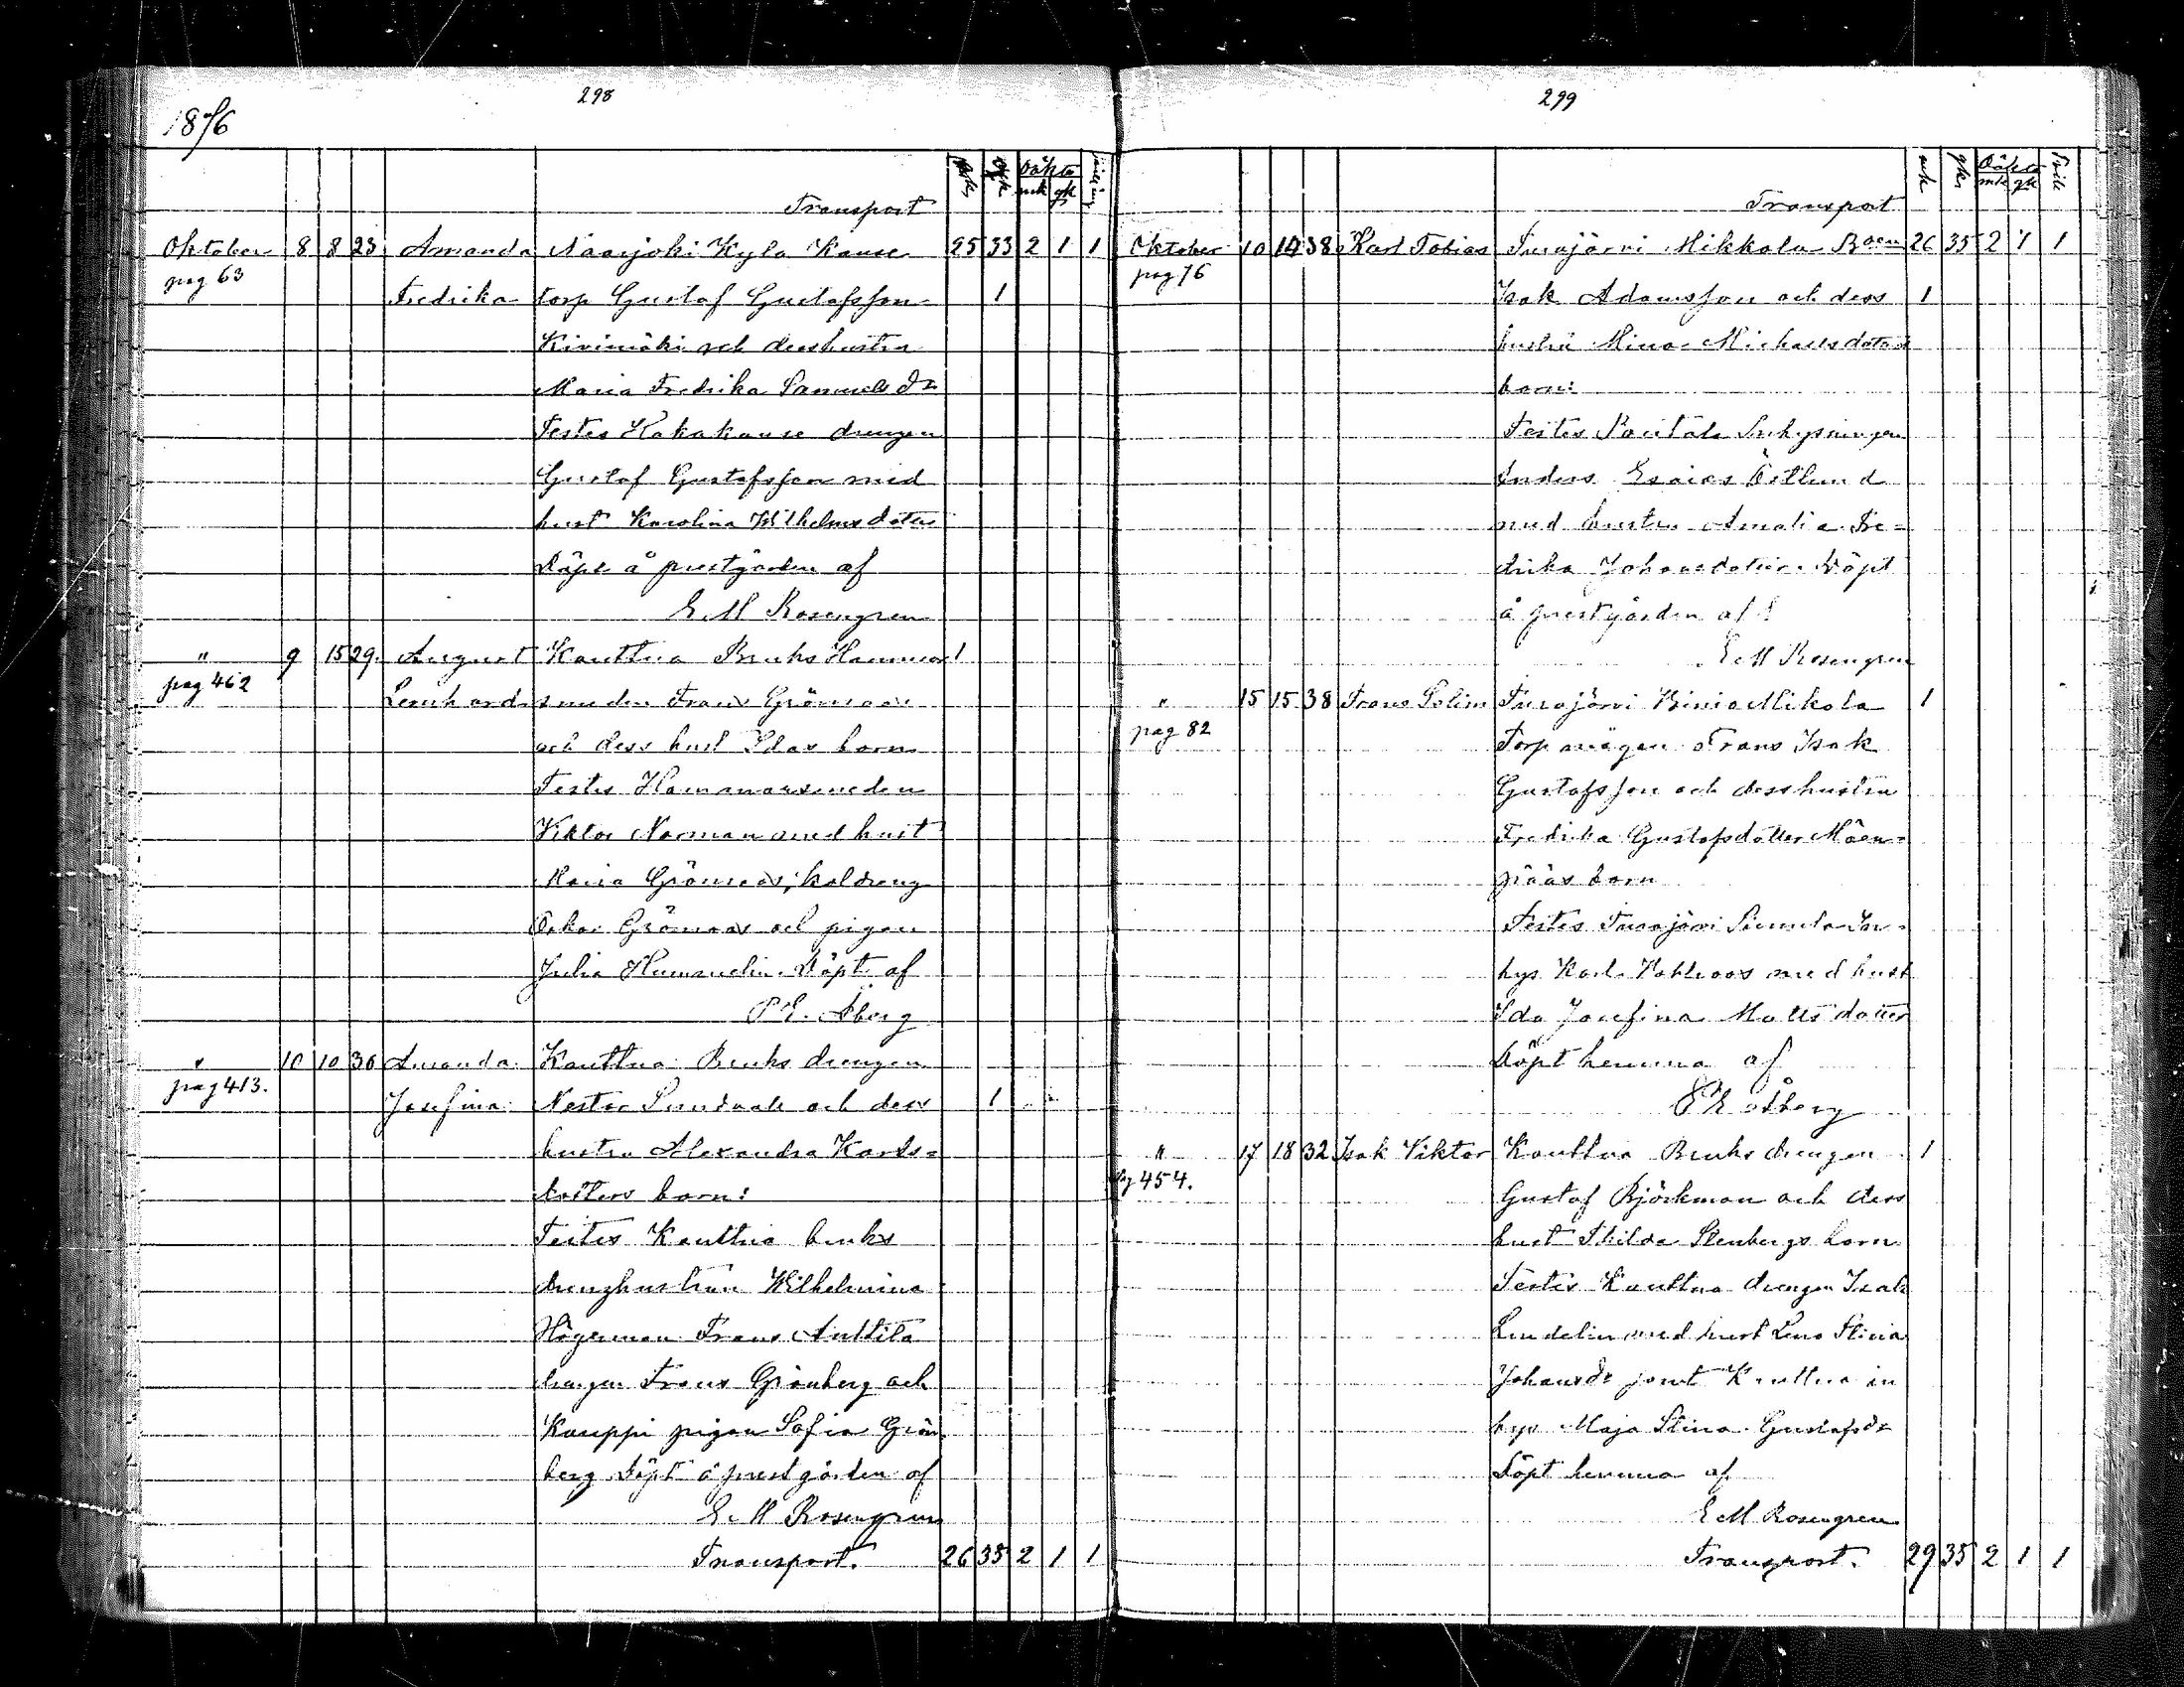 298
1876
mk qk oäkta mk qk
Transport
Oktober 8 8 23 Amanda Naarjoki Kylä Kause 25 33 2 1 1
pag 63
Fredrika torp Gustaf Gustafsson 1
Kivimäki och dess hustru
Maria Fredrika Samuels dr
Testes Kakakause drengen
Gustaf Gustafsson med
hust Karolina Wilhelms dotter
Döpt å prestgården af
E. M Rosengren
" 9 15 29. August Kauttua Bruks Hammar 1
pag 462
Leonhard smeden Frans Grönroos
och dess hust Idas barn
Testes Hammarsmeden
Viktor Norrman med hust
Maria Grönroos, koldreng
Oskar Grönroos och pigan
Julia Hammelin. Döpt af
P E. Åberg
" 10 10 36 Amanda Kauttua Bruks drengen
pag 413.
Josefina Nestor Sundvall och dess 1
hustru Alexandra Karls=
dotters barn:
Testes Kauttua bruks
drenghustrun Wilhelmina
Högerman Frans Anttila
drengen Frans Grönberg och
Kauppi pigan Sofia Grön
berg Döpt å prestgården af
E. M Rosengren
Transport. 26 35 2 1 1
299
mk qk Oäkta mk qk
Transport
Oktober 10 14 38 Karl Tobias Turajärvi Mikkola Boen 26 35 2 1 1
pag 76
Isak Adamsson och dess 1
hustru Mina Michaels dotters
barn:
Testes Inhysningen
Anders Esaias Östlund
med hustru Amalia Fre=
drika Johansdotter. Döpt
å prestgården af
E M Rosengren
" 15 15 38 Frans Selim Turajärvi Mikola 1
pag 82
Torpmågen Frans Isak
Gustafsson och dess hustru
Fredrika Gustafsdotter Mäen=
pääs barn
Testes Turajärvi Simula In=
hys Karl Vahlroos med hust
Ida Josefina Matts dotter
Döpt hemma af
P E Åberg
" 17 18 32 Isak Viktor Kauttua Bruks drengen 1
pg 454.
Gustaf Björkman och dess
hust Thilda Stenbergs barn
Testes Kauttua drengen Isak
Lindelin med hust Lena Stina
Johansdr samt Kauttua in
hys Maja Stina Gustafsdr
Döpt hemma af
E M Rosengren
Transport. 29 35 2 1 1